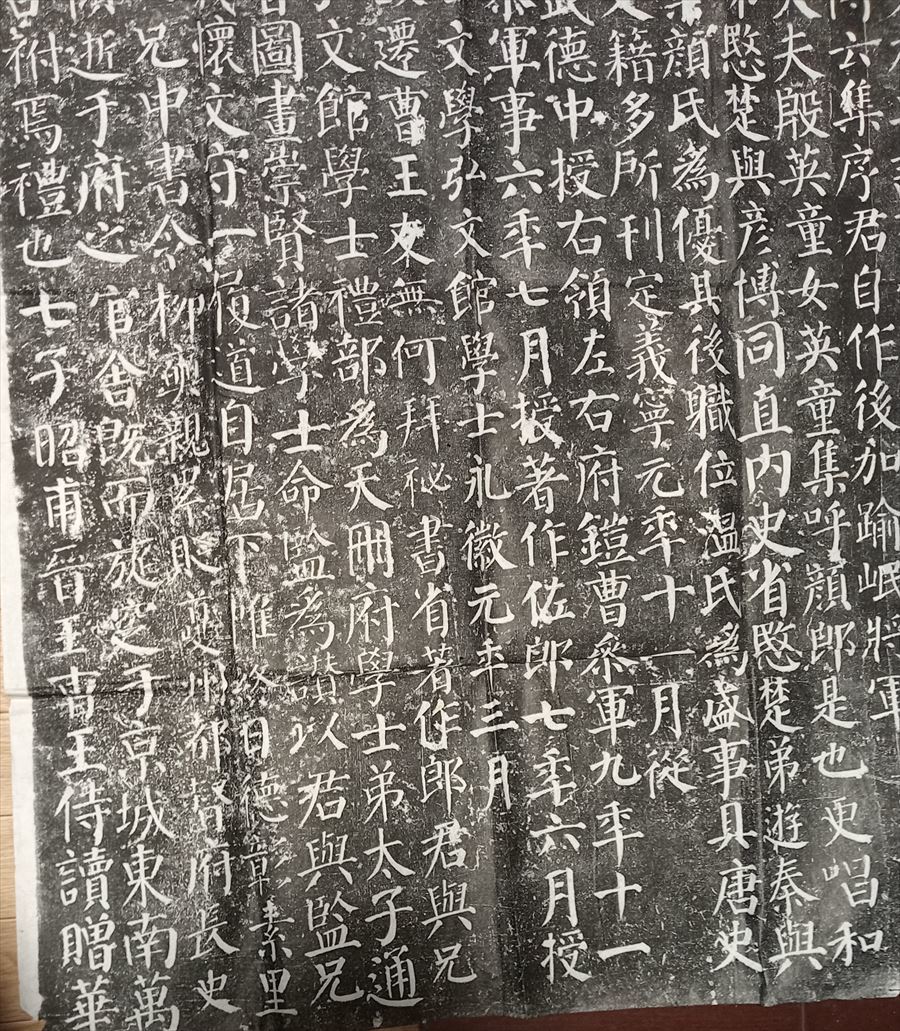 六集序君自作後加踰岷將軍
夫殷英童女英童集呼顏郎是也更唱和
愍楚與彥博同直內史省愍楚弟遊秦與
顏氏為優其後職位溫氏為盛事具唐史
籍多所刊定義寧元年十一月從
武德中授右領左右府鎧曹參軍九年十一
軍事六年七月授著作佐郎七年六月授
文學弘文館學士永徽元年三月
遷曹王友無何拜祕書省著作郎君與兄
文館學士禮部為天冊府學士弟太子通
圖畫崇賢諸學士命監為讚以君與監兄
懷文守一履道自居下帷終日德彰素里
兄中書令柳奭親累貶夔州都督府長史
逝于府之官舍既而旋窆于京城東南萬
祔焉禮也七子昭甫晉王曹王侍讀贈華